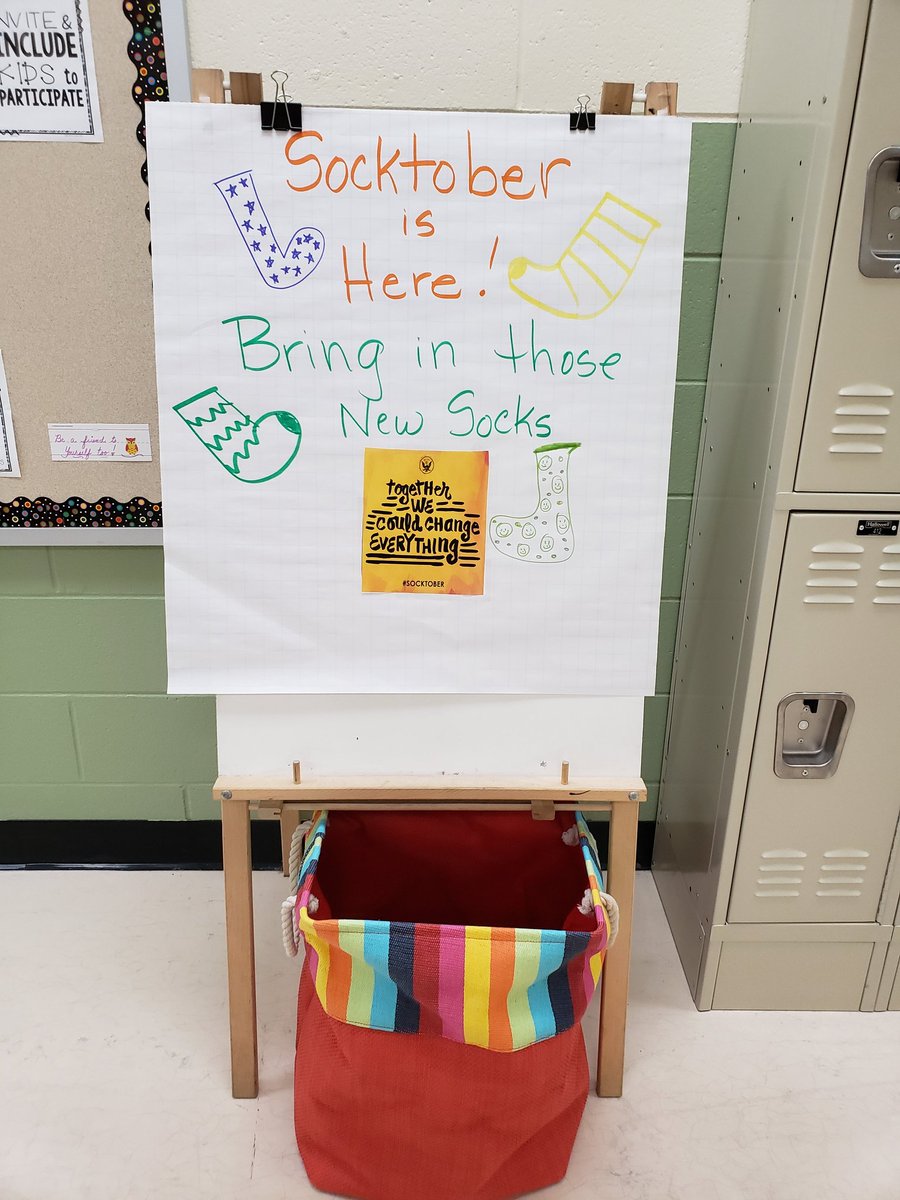 NVITE &
INCLUDE
KIDS to
PARTICIPATE
Socktober
is
Here!
Bring in those
New Socks
Be a friend to
Yourself too!
togetHer
WE
could change
EVERYTHING
#SOCKTOBER
Hallowell
412